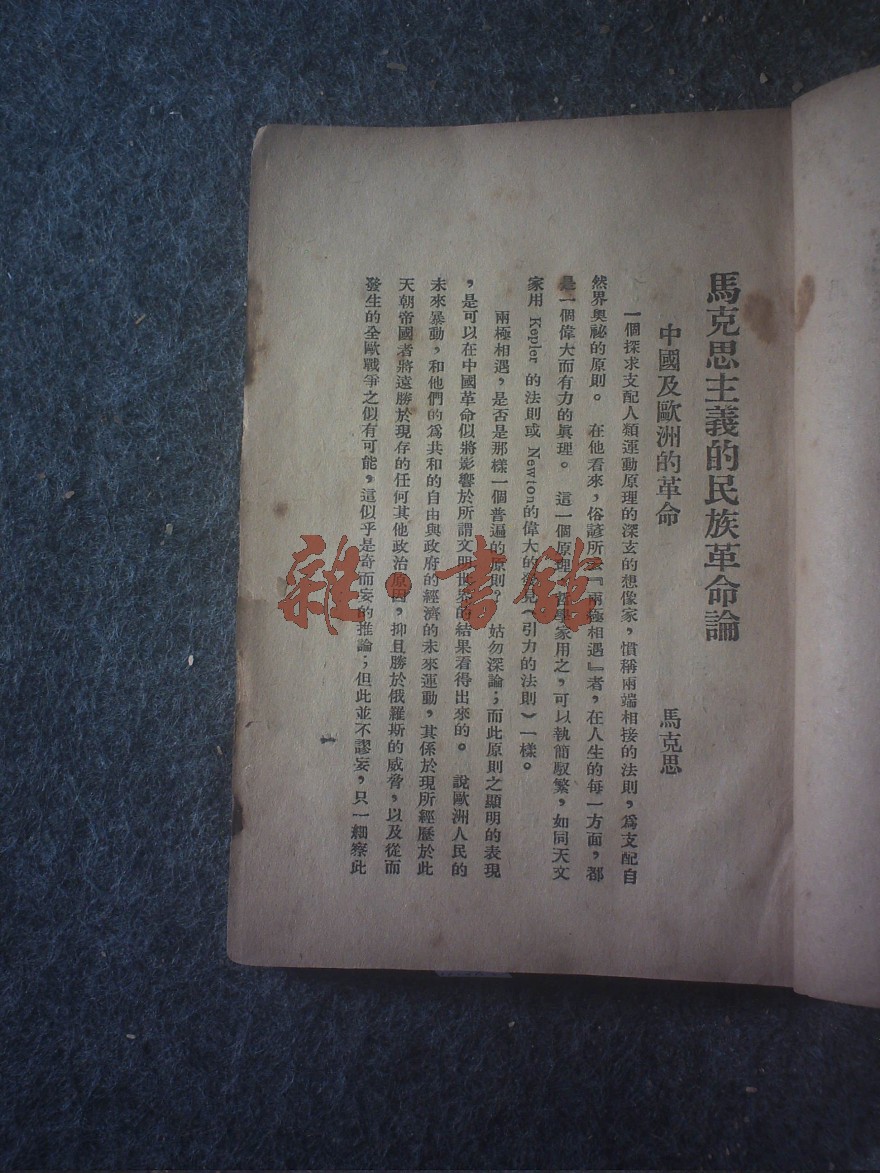 馬克思主義的民族革命論
中國及歐洲的革命 馬克思
一個探求支配人類運動原理的深玄的想像家，慣稱兩端相接的法則，爲支配自
然界奧祕的原則。 在他看來，俗諺所云『兩極相遇』者，在人生的每一方面，都
是一個偉大而有力的眞理。 這一個原理，哲學家用之，可以執簡馭繁，如同天文
家用 Kepler 的法則或 Newton的偉大的發見（引力的法則）一樣。
兩極相遇，是否是那樣一個普遍的原則？ 姑勿深論；而此原則之顯明的表現
，是可以在中國革命似將影響於所謂文明世界的結果看得出來的。 說歐洲人民的
未來暴動，和他們的爲共和的自由與政府的經濟的未來運動，其係於現所經歷於此
天朝帝國者將遠勝於現存的任何其他政治原因，抑且勝於俄羅斯的威脅，以及從而
發生的全歐戰爭之似有可能，這似乎是奇而妄的推論；但此並不謬妄，只一細察此
一
雜·書館